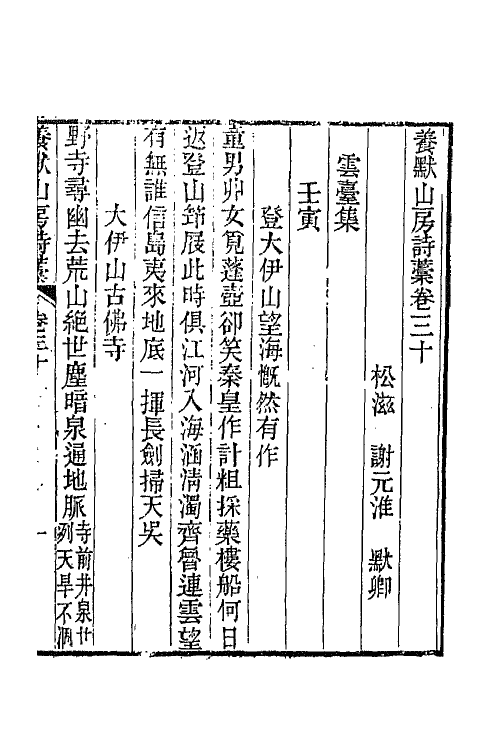 養默山房詩藁卷三十
松滋　謝元淮　默卿
雲臺集
壬寅
登大伊山望海慨然有作
童男丱女覓蓬壺卻笑秦皇作計粗採藥樓船何日
返登山筇屐此時俱江河入海涵淸濁齊魯連雲望
有無誰信島夷來地底一揮長劍掃天吳
大伊山古佛寺
野寺尋幽去荒山絕世塵暗泉通地脈寺前井泉廿
列天旱不涸
養默山房詩藁　卷三十　一